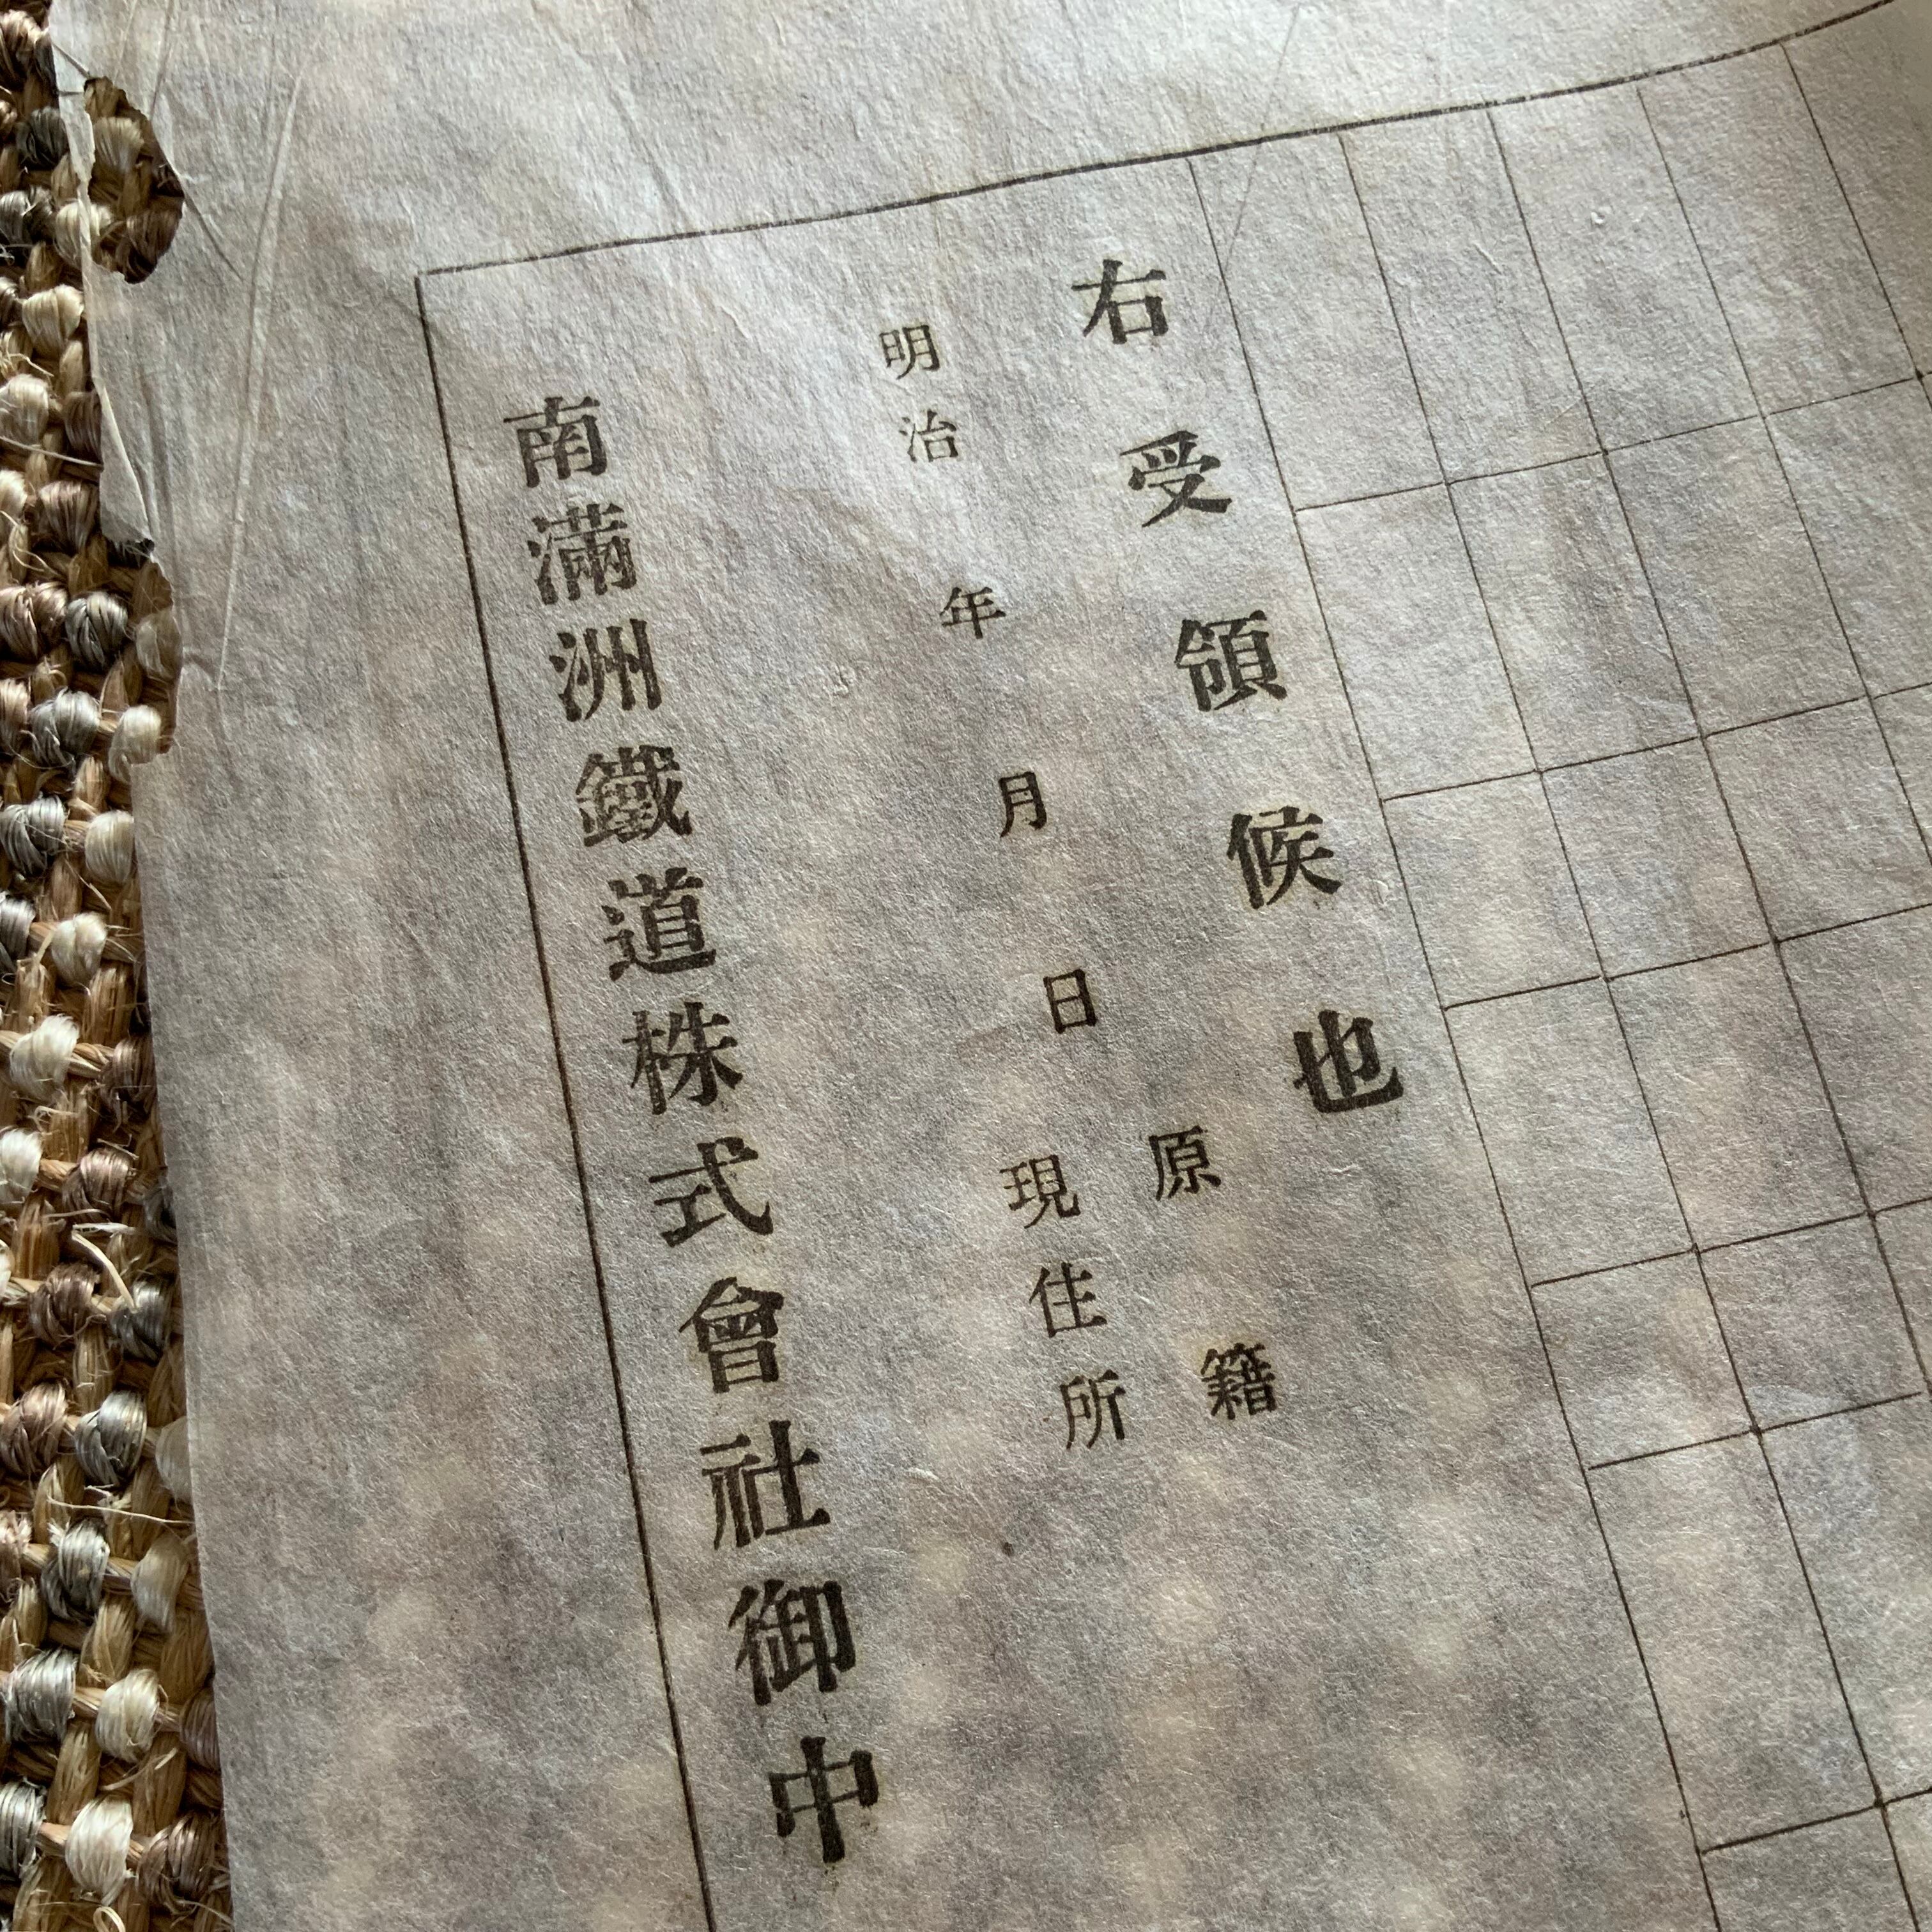 右受領候也
原籍
現住所
明治 年 月 日
南滿洲鐵道株式會社御中